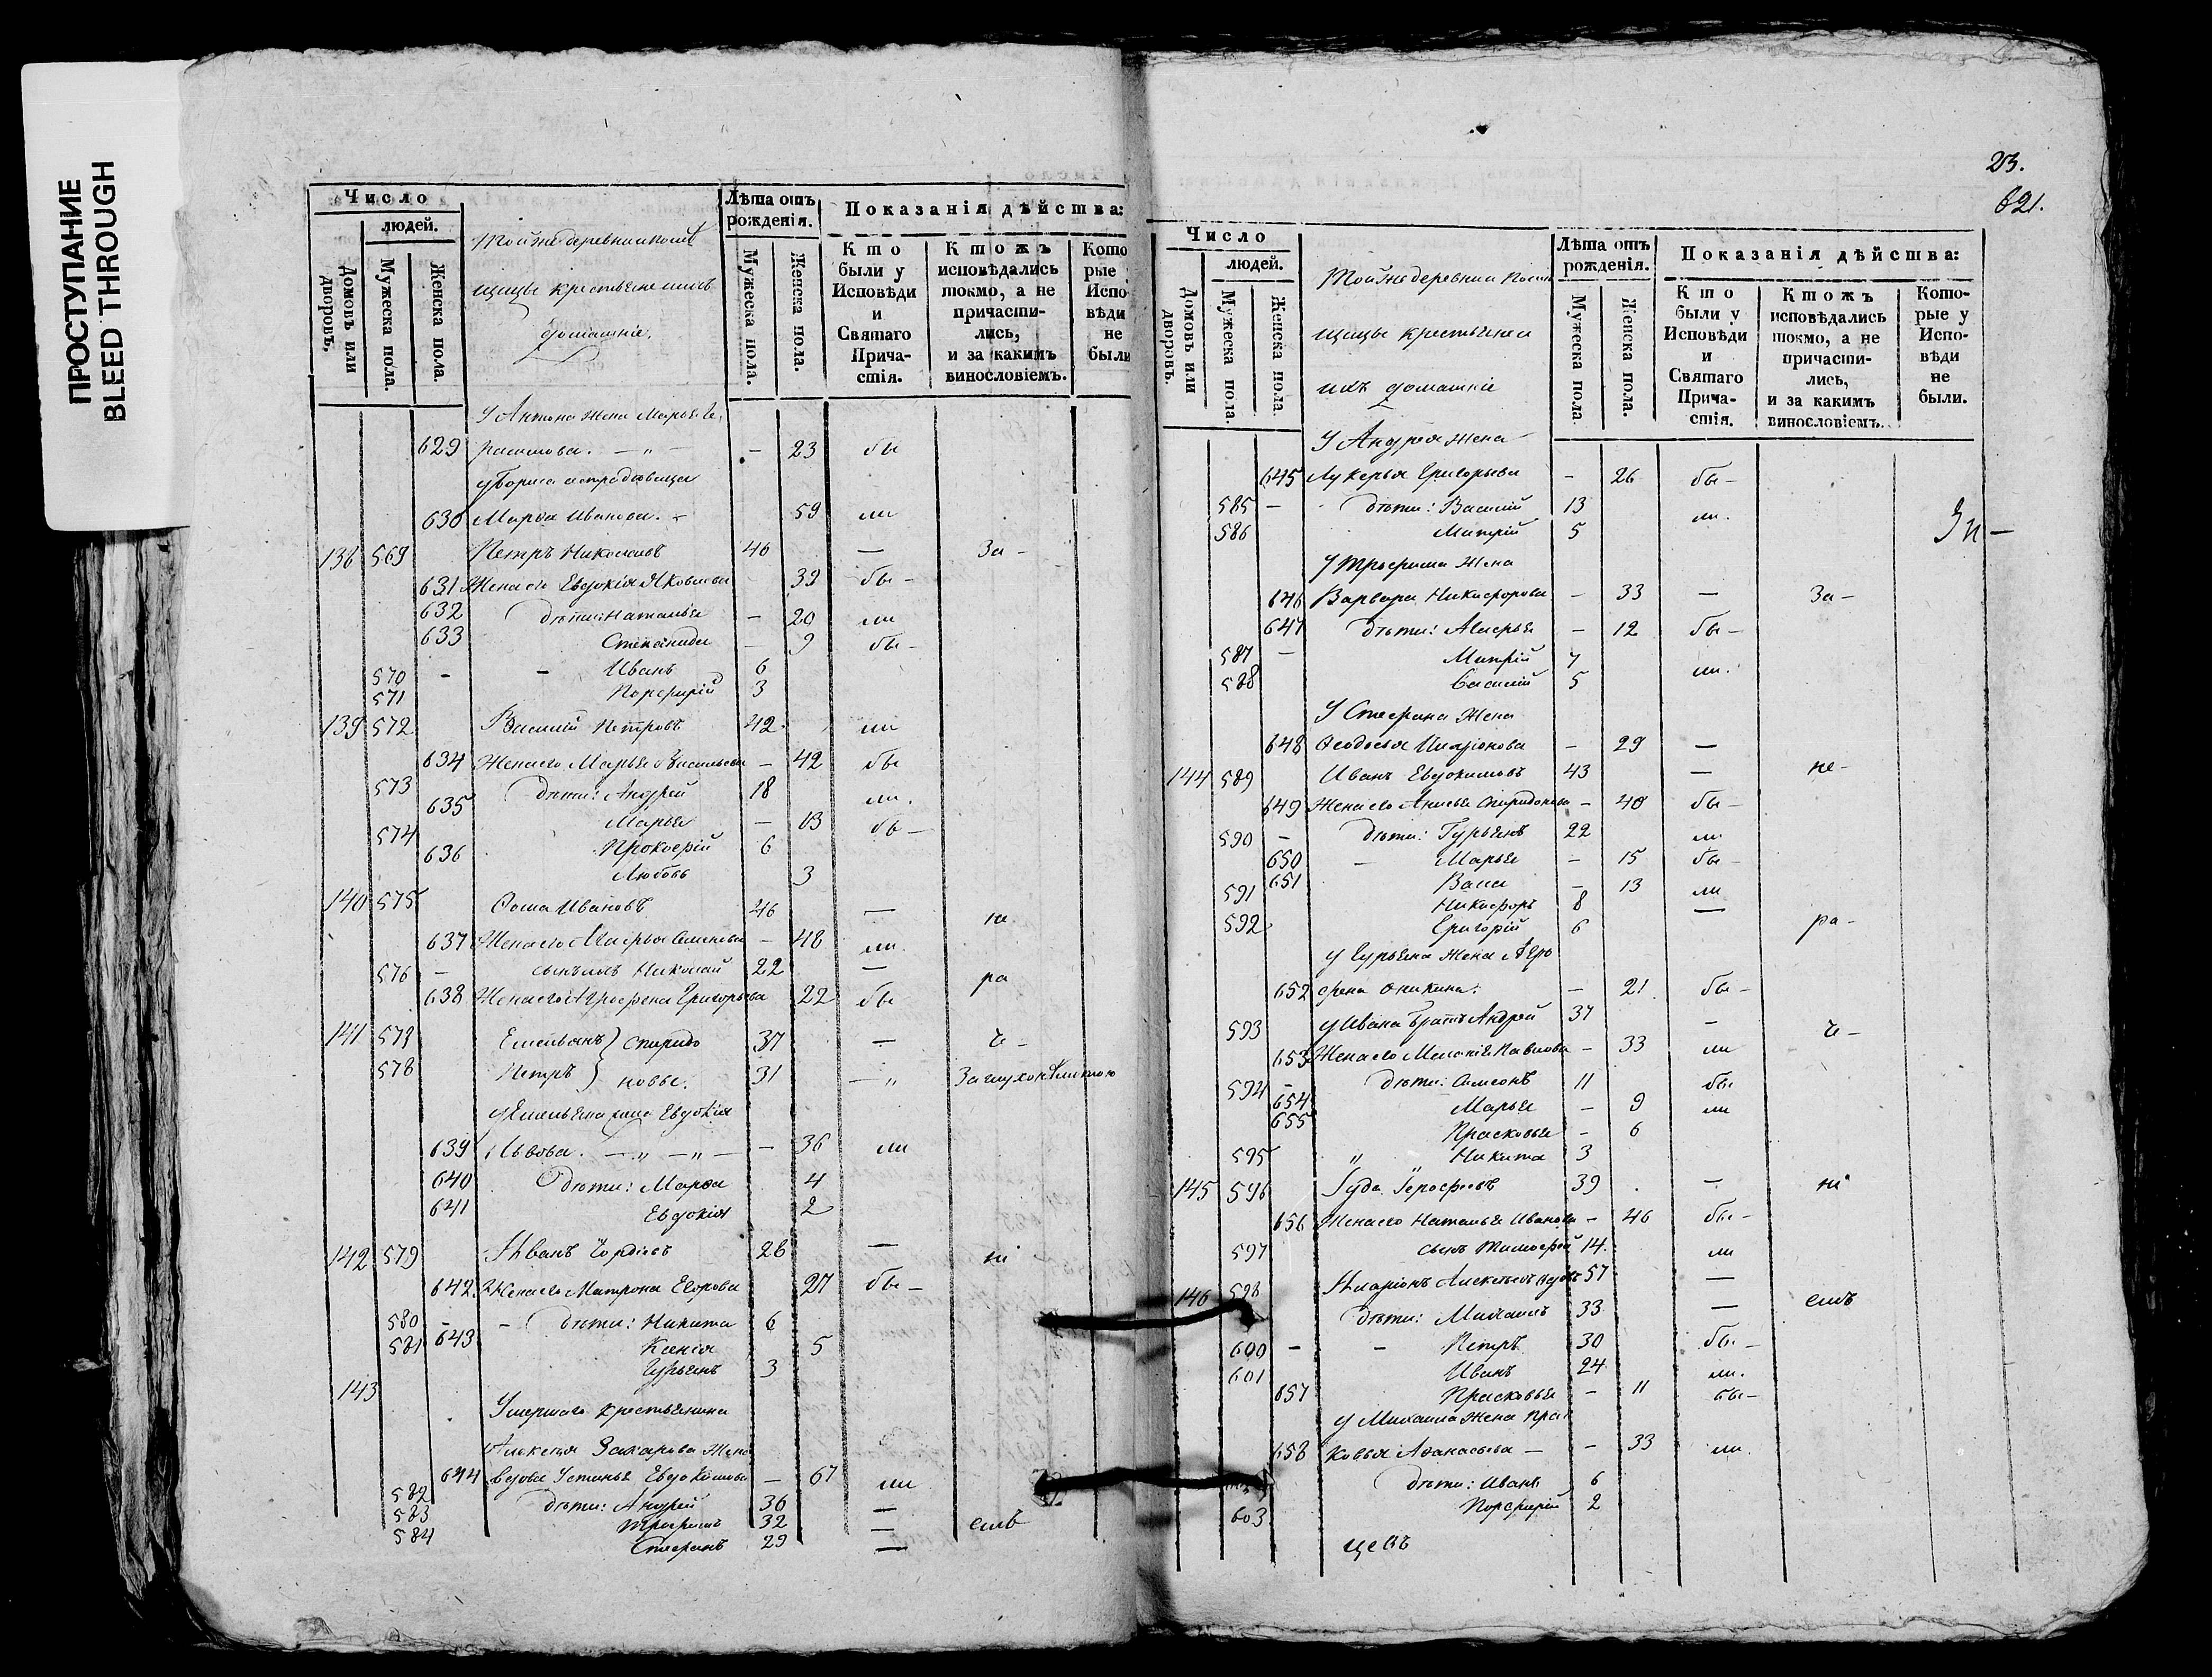 ПРОСТУПАНИЕ
BLEED THROUGH
Число
людей.
Домовъ или дворовъ.
Мужеска пола.
Женска пола.
Тойже деревни
щицы крестьяне ихъ
домашніе.
Лѣта отъ рожденія.
Мужеска пола.
Женска пола.
Показанія дѣйства:
Кто были у Исповѣди и Святаго Причастія.
Ктожъ исповѣдались токмо, а не причастились, и за какимъ винословіемъ.
Кото
рые
Испо
вѣди
не
были
У Антона жена Марья
629 — 23 бы
у Бориса
630 Марѳа Иванова. 59 ли
138 569 Петръ Николаевъ 46 — За —
631 Жена его Евдокія Яковлева 39 бы —
632 дѣти: Наталья — 20 ли
633 Степанида — 9 бы —
570 — Иванъ 6
571 Порфирій 3
139 572 Василій Петровъ 42 ли
634 Жена его Марья Васильева — 42 бы
573 дѣти: Андрей 18 ли.
635 Марья — 13 бы —
574 Прокофій 6
636 Любовь 3
140 575 Ѳома Ивановъ 46 — не
637 Жена его Агафья Семенова — 48 ли
576 — сынъ ихъ Николай 22 — ра
638 Жена его Агрофена Григорьева 22 бы
141 573 Емельянъ } Спиридо 37 — че —
578 Петръ } новы. 31 — „ За глухонѣмотою
у Емельяна жена Евдокія
639 Львова. — „ — „ — — 36 ли
640 дѣти: Марѳа 4
641 Евдокія 2
142 579 Иванъ Гордѣевъ 26 — ні
642 Жена его Матрона Егорова 27 бы —
580 — — дѣти: Никита 6
581 643 Ксенія 5
Гурьянъ 3
143 Умершаго крестьянина
Алексѣя Захарова жена
644 вдова Устинья Евдокимова — 67 ли
582 дѣти: Андрей 36 —
583 Трофимъ 32 — емъ
584 Стефанъ 29 —
23.
621.
Число
людей.
Домовъ или дворовъ.
Мужеска пола.
Женска пола.
Тойже деревни
щицы крестьяне и
ихъ домашніе
Лѣта отъ рожденія.
Мужеска пола
Женска пола.
Показанія дѣйства:
Кто были у Исповѣди и Святаго Причастія.
Ктожъ исповѣдались токмо, а не причастились, и за какимъ винословіемъ.
Которые у Исповѣди не были.
У Андрея жена
645 Лукерья Григорьева — 26 бы —
585 — дѣти: Василій 13 ли.
586 Митрій 5
У Трофима жена
646 Варвара Никифорова — 33 — За —
647 дѣти: Агафья — 12 бы —
587 — Митрій 7 ли.
588 Василій 5
У Стефана жена
648 Ѳеодосья Иларіонова — 29 —
144 589 Иванъ Евдокимовъ 43 — не —
649 Жена его Анисья Спиридонова — 40 бы —
590 — дѣти: Гурьянъ 22 ли
650 — Марья — 15 бы —
651 Васса — 13 ли
591 Никифоръ 8 —
592 Григорій 6 ра —
у Гурьяна жена Агро
652 фена Оникина. — 21 бы —
593 у Ивана братъ Андрей 37 — че —
653 Жена его Меланія Павлова — 33 ли
594 — дѣти: Симеонъ 11 бы
654 Марья — 9 ли
655 Прасковья — 6
595 „ „ Никита 3
145 596 Іуда Іерофеевъ 39 — ні
656 Жена его Наталья Иванова — 46 бы —
597 сынъ Тимофей 14. ли
146 598 Иларіонъ Алексѣевъ вдовъ 57 —
дѣти: Михаилъ 33 — емъ
600 — — Петръ 30 бы —
601 Иванъ 24 ли.
657 Прасковья — 11 бы —
у Михаила жена Прас
658 ковья Аѳанасьева — — 33 ли.
дѣти: Иванъ 6
603 Порфирій 2
цевъ